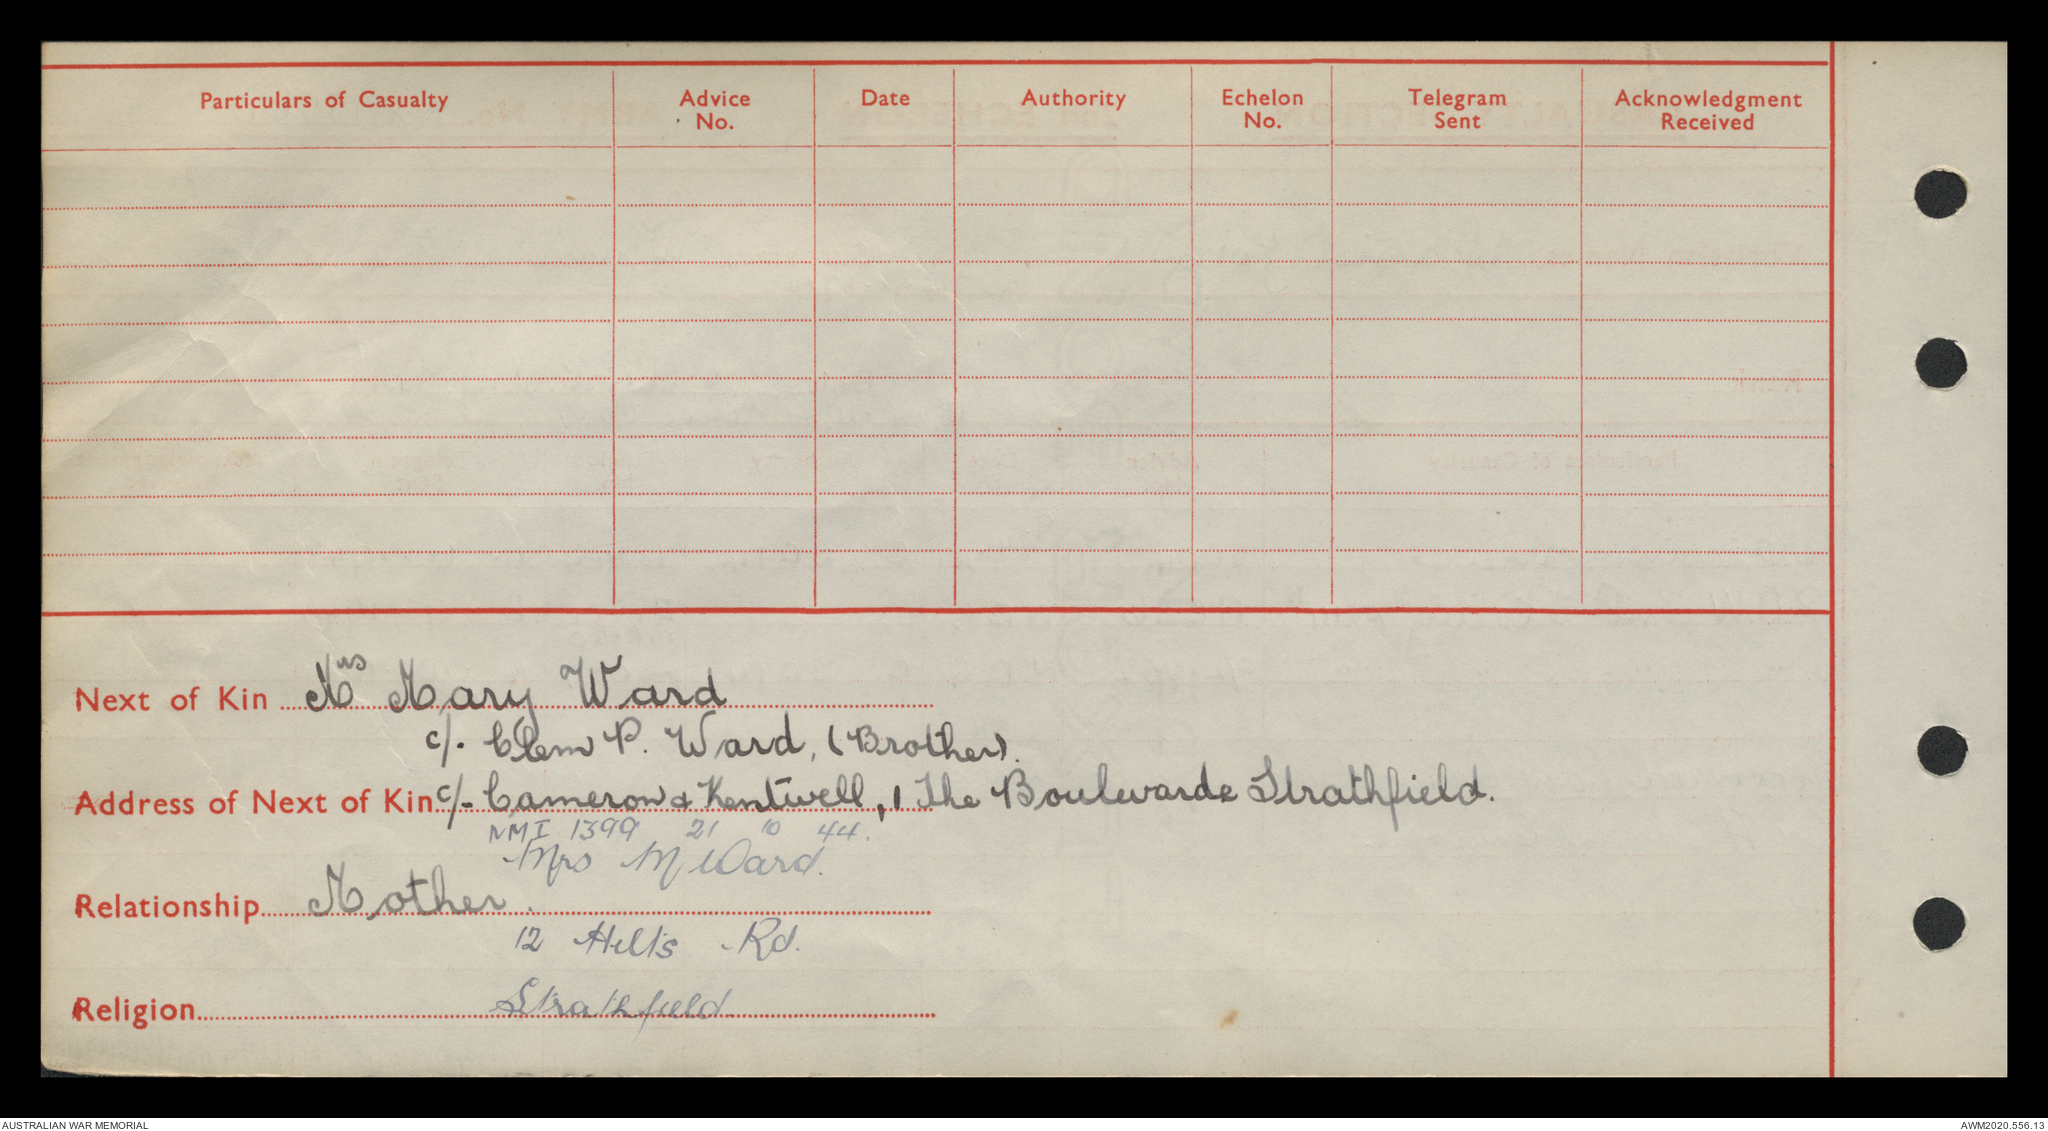 Particulars of Casualty Advice No. Date Authority Echelon No. Telegram Sent Acknowledgment Received
Next of Kin Mrs Mary Ward
c/- Clem P. Ward, (Brother).
Address of Next of Kin c/- Cameron & Kentwell, 1 The Boulevarde Strathfield.
NMI 1399 21 10 44.
Mrs M Ward.
Relationship Mother.
12 Hills Rd.
Religion Strathfield
AUSTRALIAN WAR MEMORIAL AWM2020.556.13